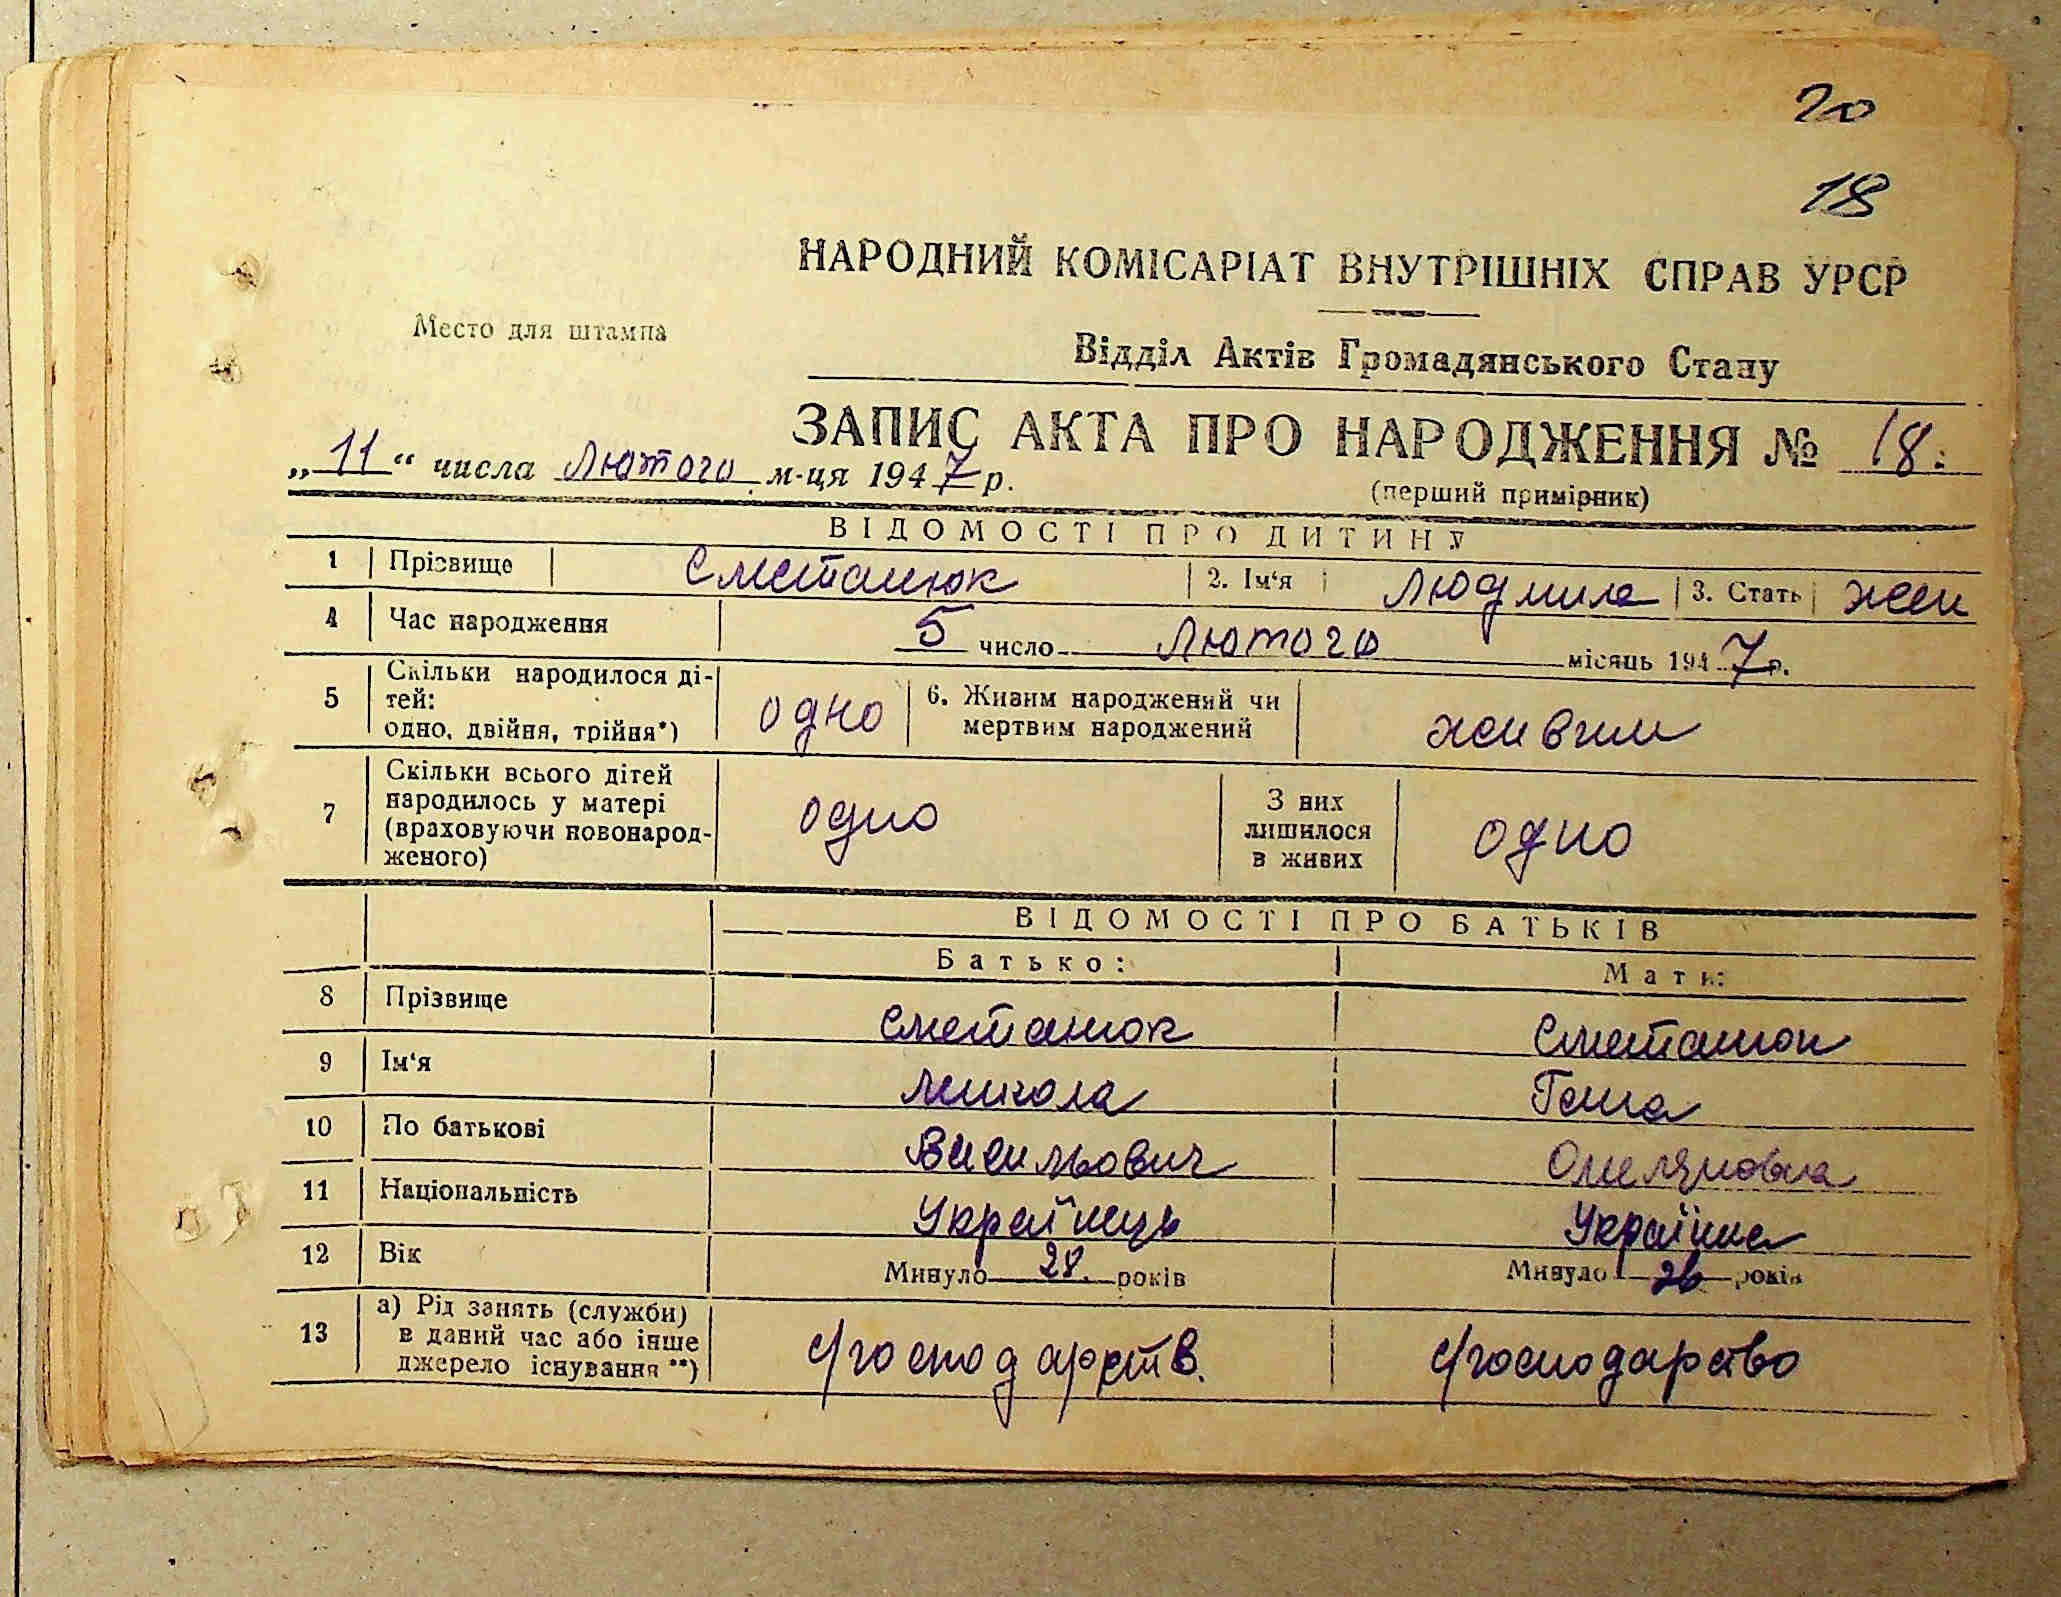 20
18
НАРОДНИЙ КОМІСАРІАТ ВНУТРІШНІХ СПРАВ УРСР
Место для штампа
Відділ Актів Громадянського Стану
ЗАПИС АКТА ПРО НАРОДЖЕННЯ № 18.
„11“ числа Лютого м-ця 1947 р.
(перший примірник)
ВІДОМОСТІ ПРО ДИТИНУ
1 Прізвище Сметанюк 2. Ім'я Людмила 3. Стать жен
4 Час народження 5 число Лютого місяць 1947 р.
5 Скільки народилося ді-
тей:
одно, двійня, трійня*) одно 6. Живим народжений чи
мертвим народжений живим
7 Скільки всього дітей
народилось у матері
(враховуючи новонарод-
женого) одно З них
лишилося
в живих одно
ВІДОМОСТІ ПРО БАТЬКІВ
Батько: Мати:
8 Прізвище Сметанюк Сметанюк
9 Ім'я Микола Ганна
10 По батькові Васильович Омеляновна
11 Національність Українець Українка
12 Вік Минуло 28. років Минуло 26 років
13 а) Рід занять (служби)
в даний час або інше
джерело існування **) с/господарств. с/господарство